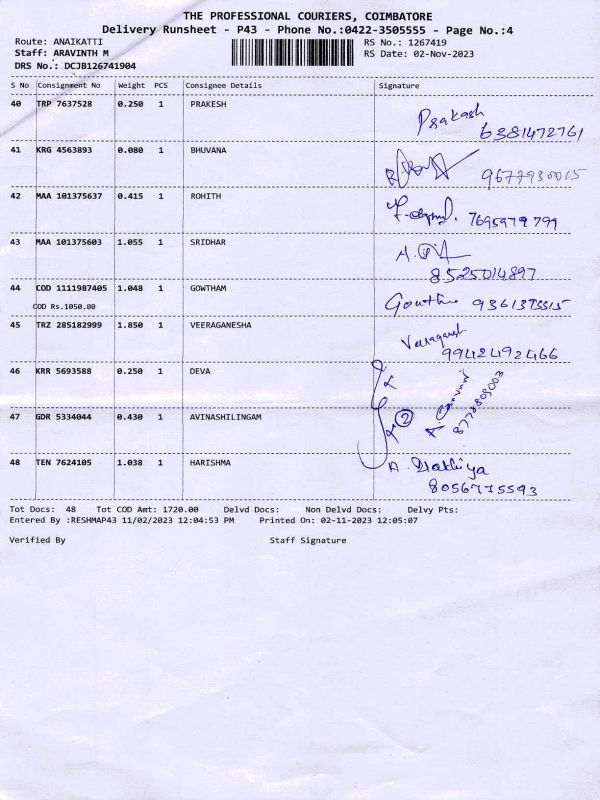 THE PROFESSIONAL COURIERS, COIMBATORE
Delivery Runsheet - P43 - Phone No.:0422-3505555 - Page No.:4
Route: ANAIKATTI RS No.: 1267419
Staff: ARAVINTH M RS Date: 02-Nov-2023
DRS No.: DCJB126741904
S No Consignment No Weight PCS Consignee Details Signature
40 TRP 7637528 0.250 1 PRAKESH Prakash
6381472761
41 KRG 4563893 0.080 1 BHUVANA
9677930015
42 MAA 101375637 0.415 1 ROHITH
7695979799
43 MAA 101375603 1.055 1 SRIDHAR
8525014897
44 COD 1111987405 1.048 1 GOWTHAM
COD Rs.1050.00
45 TRZ 285182999 1.850 1 VEERAGANESHA
9942492466
46 KRR 5693588 0.250 1 DEVA
47 GDR 5334044 0.430 1 AVINASHILINGAM 2
48 TEN 7624105 1.038 1 HARISHMA
8056775593
Tot Docs: 48 Tot COD Amt: 1720.00 Delvd Docs: Non Delvd Docs: Delvy Pts:
Entered By :RESHMAP43 11/02/2023 12:04:53 PM Printed On: 02-11-2023 12:05:07
Verified By Staff Signature